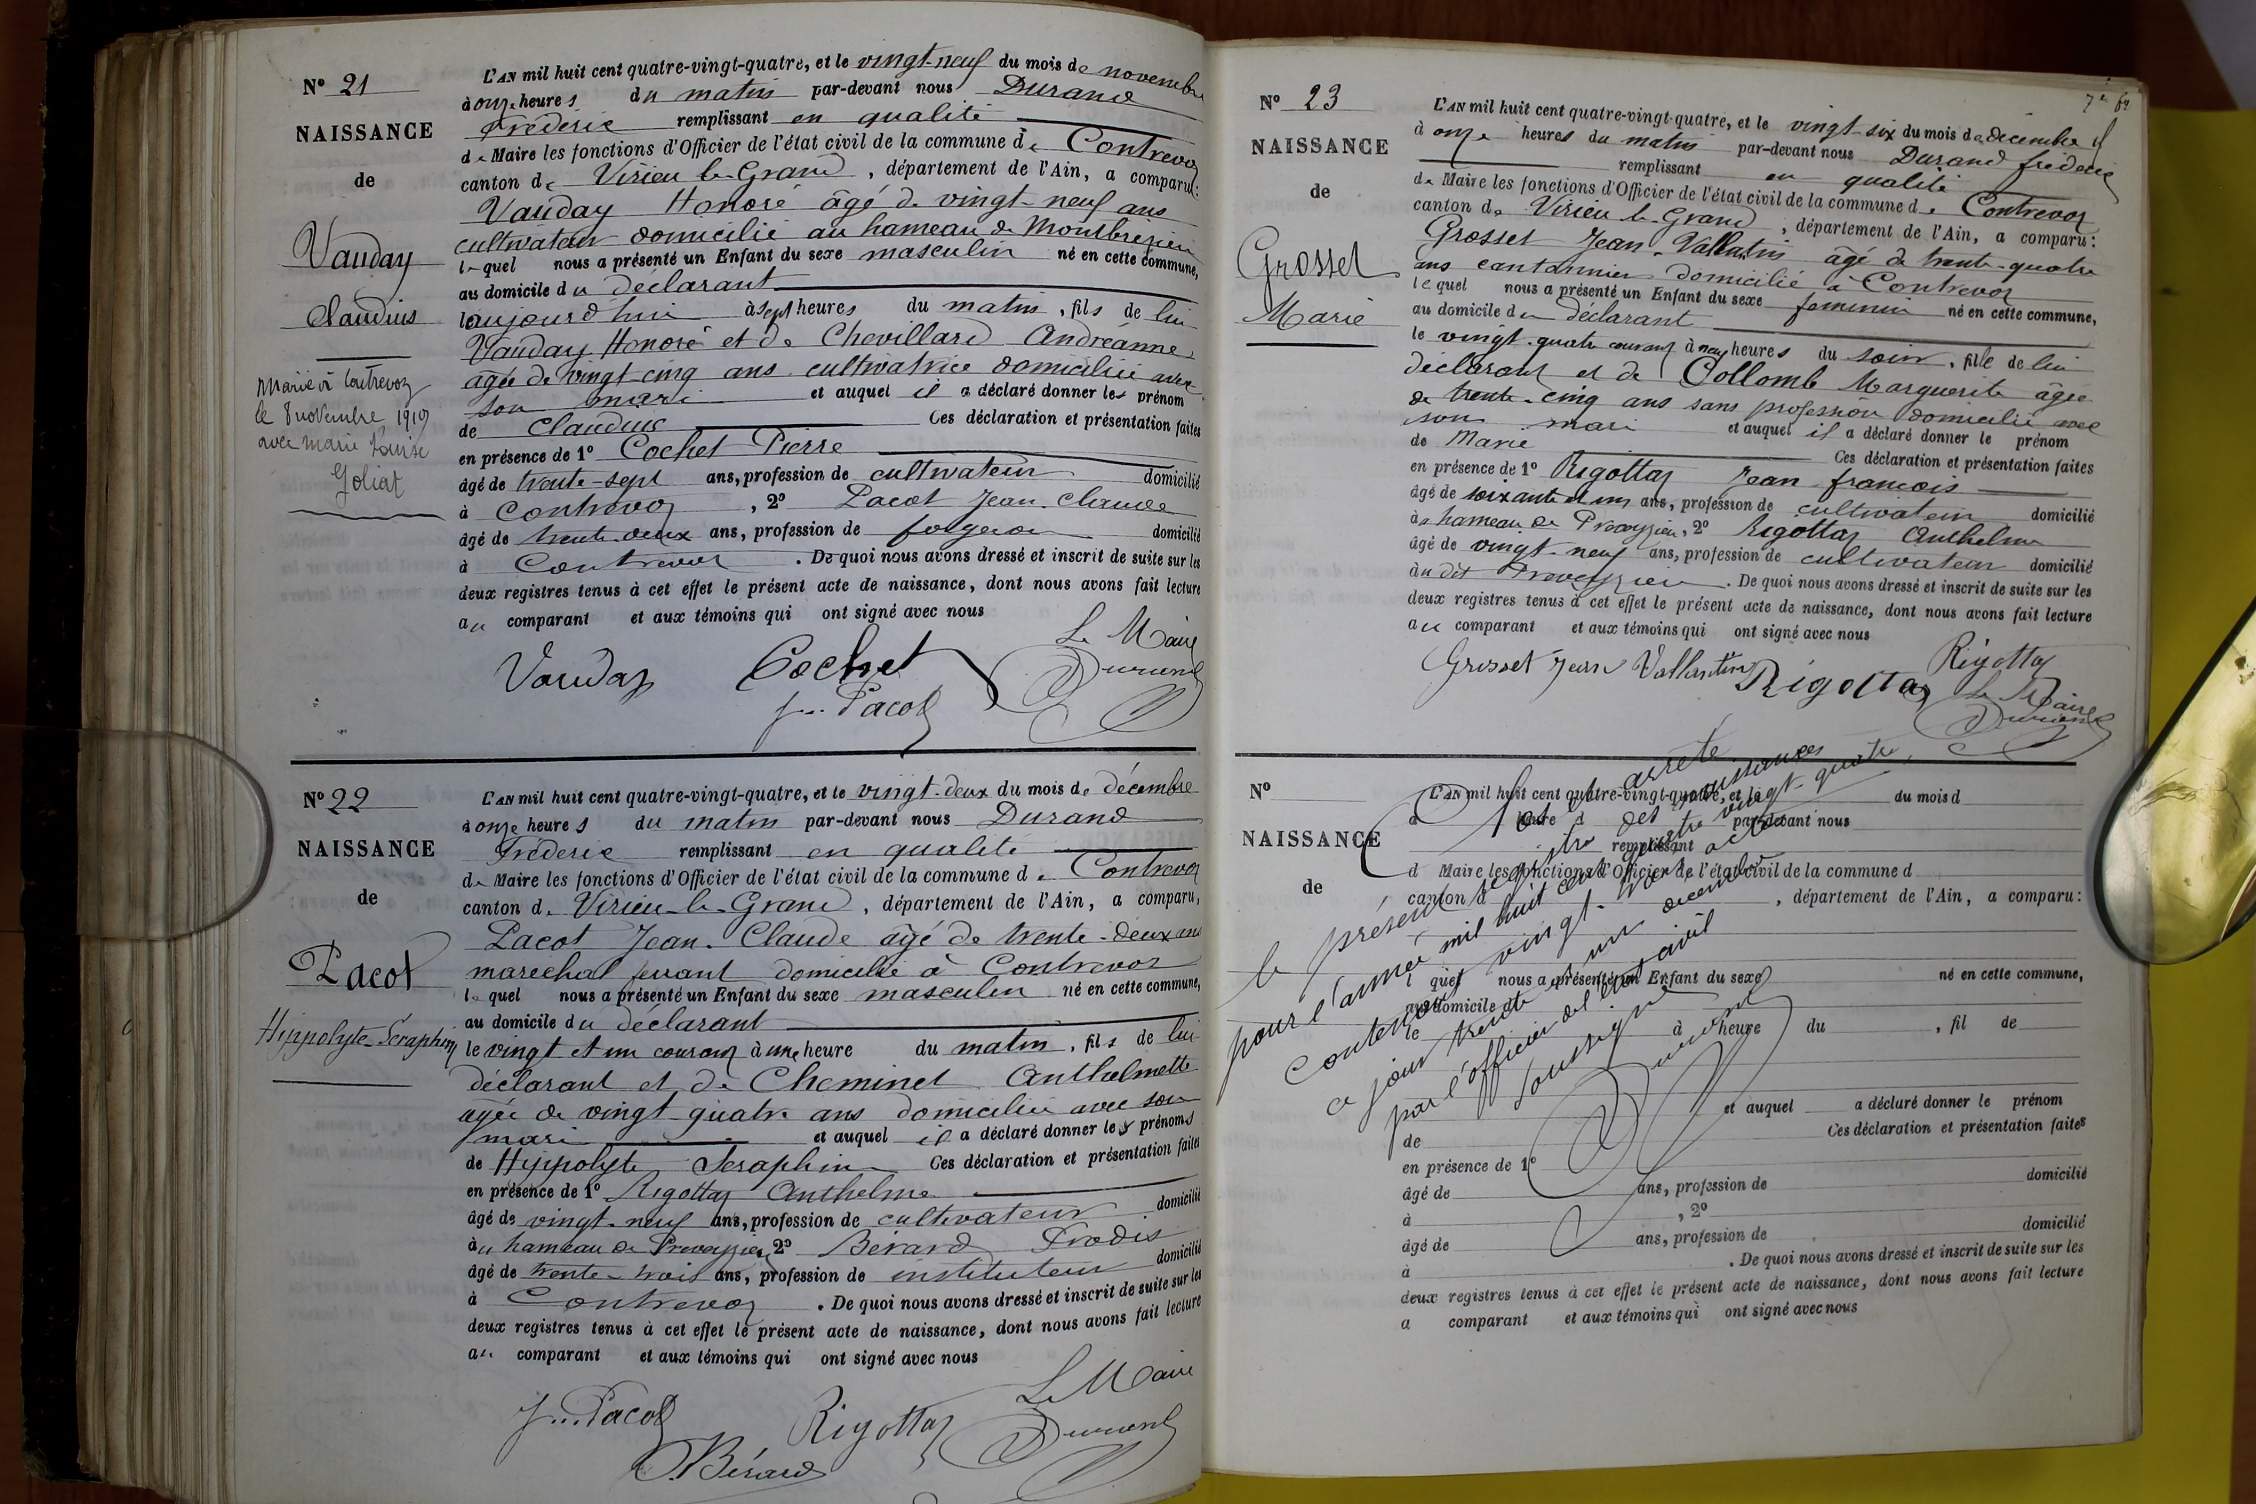 N° 21
NAISSANCE
de
Vauday
Claudius
Marié à Contrevoz
le 8 novembre 1919
avec Marie Louise
Goliat
L'AN mil huit cent quatre-vingt-quatre, et le vingt-neuf du mois de novembre
à onze heures du matin par-devant nous Durand
Fréderic remplissant en qualité
de Maire les fonctions d'Officier de l'état civil de la commune de Contrevoz
canton de Virieu le Grand, département de l'Ain, a comparu:
Vauday Honoré âgé de vingt-neuf ans
cultivateur domicilié au hameau de Montbreyzieu
lequel nous a présenté un Enfant du sexe masculin né en cette commune,
au domicile du déclarant
aujourd'hui à sept heures du matin, fils de lui
Vauday Honoré et de Chevillard Andréanne
âgée de vingt cinq ans cultivatrice domiciliée avec
son mari et auquel il a déclaré donner les prénom
de Claudius Ces déclaration et présentation faites
en présence de 1° Cochet Pierre
âgé de trente-sept ans, profession de cultivateur domicilié
à Contrevoz, 2° Pacot Jean-Claude
âgé de trente-deux ans, profession de forgeron domicilié
à Contrevoz. De quoi nous avons dressé et inscrit de suite sur les
deux registres tenus à cet effet le présent acte de naissance, dont nous avons fait lecture
au comparant et aux témoins qui ont signé avec nous
Le Maire
Vauday Cochet Durand
J.. Pacot
N° 22
NAISSANCE
de
Pacot
Hippolyte-Séraphin
L'AN mil huit cent quatre-vingt-quatre, et le vingt-deux du mois de décembre
à onze heures du matin par-devant nous Durand
Fréderic remplissant en qualité
de Maire les fonctions d'Officier de l'état civil de la commune de Contrevoz
canton de Virieu-le-Grand, département de l'Ain, a comparu,
Pacot Jean-Claude âgé de trente-deux ans
marechal ferrant domicilié à Contrevoz
lequel nous a présenté un Enfant du sexe masculin né en cette commune,
au domicile du déclarant
le vingt et un courant à une heure du matin, fils de lui
déclarant et de Cheminet Anthelmette
âgée de vingt-quatre ans domiciliée avec son
mari et auquel il a déclaré donner les prénoms
de Hippolyte Seraphin Ces déclaration et présentation faites
en présence de 1° Rigottaz Anthelme
âgé de vingt-neuf ans, profession de cultivateur domicilié
au hameau de Preveyzieu, 2° Bérard Prodis
âgé de trente-trois ans, profession de instituteur domicilié
à Contrevoz. De quoi nous avons dressé et inscrit de suite sur les
deux registres tenus à cet effet le présent acte de naissance, dont nous avons fait lecture
au comparant et aux témoins qui ont signé avec nous
Le Maire
J... Pacot Rigottaz Durand
Bérard
N° 23
NAISSANCE
de
Grosset
Marie
L'AN mil huit cent quatre-vingt-quatre, et le vingt-six du mois de décembre
à onze heures du matin par-devant nous Durand fréderic
remplissant en qualité
de Maire les fonctions d'Officier de l'état civil de la commune de Contrevoz
canton de Virieu le Grand, département de l'Ain, a comparu:
Grosset Jean-Vallentin âgé de trente-quatre
ans cantonnier domicilié à Contrevoz
lequel nous a présenté un Enfant du sexe feminin né en cette commune,
au domicile du déclarant
le vingt-quatre courant à neuf heures du soir, fille de lui
déclarant et de Collomb Marguerite âgée
de trente-cinq ans sans profession domiciliée avec
son mari et auquel il a déclaré donner le prénom
de Marie Ces déclaration et présentation faites
en présence de 1° Rigottaz Jean-françois
âgé de soixante et un ans, profession de cultivateur domicilié
au hameau de Preveyzieu, 2° Rigottaz Anthelme
âgé de vingt-neuf ans, profession de cultivateur domicilié
au dit Preveyzieu. De quoi nous avons dressé et inscrit de suite sur les
deux registres tenus à cet effet le présent acte de naissance, dont nous avons fait lecture
au comparant et aux témoins qui ont signé avec nous
Grosset Jean Vallantin Rigottaz Rigottaz
Le Maire
Durand
N°
NAISSANCE
de
L'AN mil huit cent quatre-vingt-quatre, et le du mois d
à heure d par-devant nous
remplissant
d Maire les fonctions d'Officier de l'état civil de la commune d
canton d , département de l'Ain, a comparu:
l quel nous a présenté un Enfant du sexe né en cette commune,
au domicile d
le à heure du , fil de
et auquel a déclaré donner le prénom
de Ces déclaration et présentation faites
en présence de 1°
âgé de ans, profession de domicilié
à , 2°
âgé de ans, profession de domicilié
à . De quoi nous avons dressé et inscrit de suite sur les
deux registres tenus à cet effet le présent acte de naissance, dont nous avons fait lecture
a comparant et aux témoins qui ont signé avec nous
Clos et arrêté
le présent registre des naissances
pour l'année mil huit cent quatre vingt-quatre,
contenant vingt-trois actes
ce jour trente et un decembre
par l'officier de l'état civil
soussigné
Durand